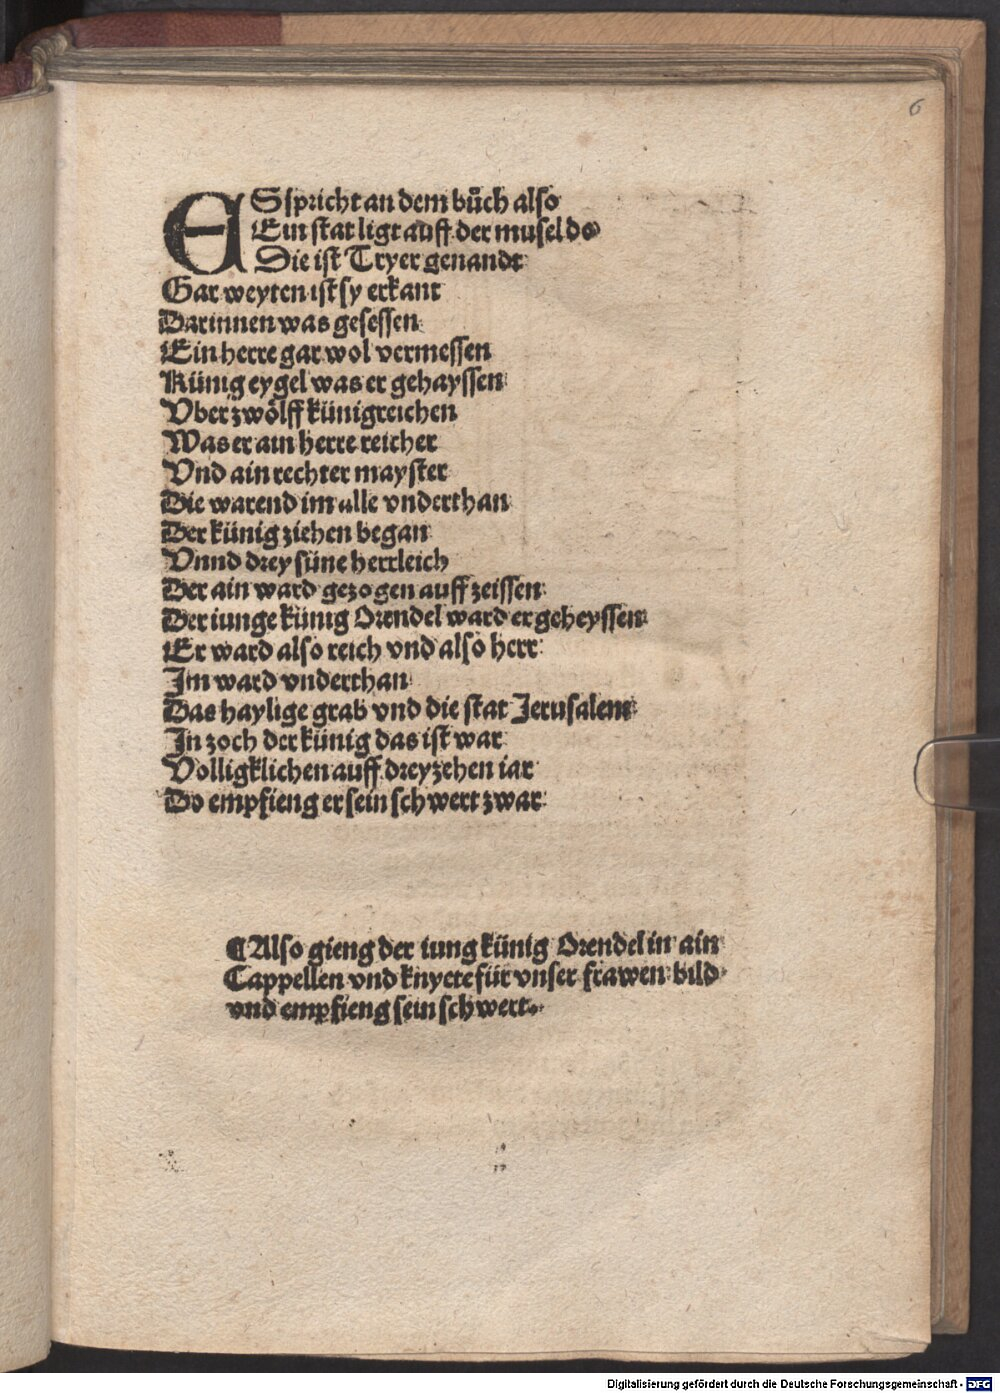 6
ES spricht an dem bůch also
Ein stat ligt auff der musel do
Die ist Tryer genandt
Gar weyten ist sy erkant
Darinnen was gesessen
Ein herre gar wol vermessen
Künig eygel was er gehayssen
Vber zwölff künigreichen
Was er ain herre reicher
Vnd ain rechter mayster
Die warend im alle vnderthan
Der künig ziehen began
Vnnd drey süne herrleich
Der ain ward gezogen auff zeissen
Der iunge künig Orendel ward er geheyssen
Er ward also reich vnd also herr
Im ward vnderthan
Das haylige grab vnd die stat Jerusalem
In zoch der künig das ist war
Volligklichen auff dreyzehen iar
Do empfieng er sein schwert zwar
¶ Also gieng der iung künig Orendel in ain
Cappellen vnd knyete für vnser frawen bild
vnd empfieng sein schwert.
Digitalisierung gefördert durch die Deutsche Forschungsgemeinschaft - DFG